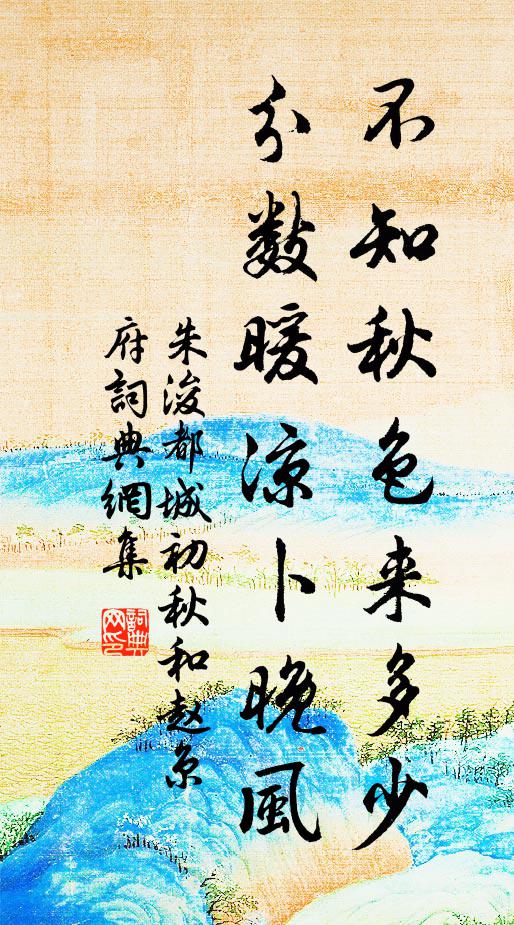 不知秋色来多少
分数暖凉卜晚風
朱浚都城初秋和赵京
府詞典網集
詞典
网印